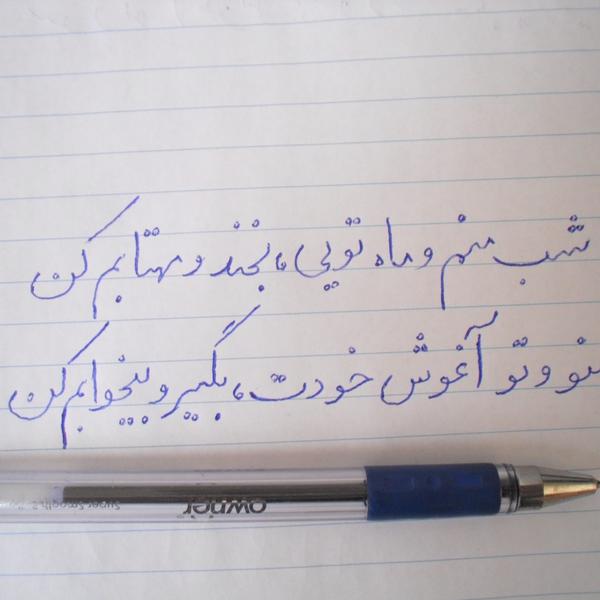 شب منم و ماه تویی، بخند و مهتابم کن
منو و تو آغوش خودت، بگیر و بیخوابم کن
owner